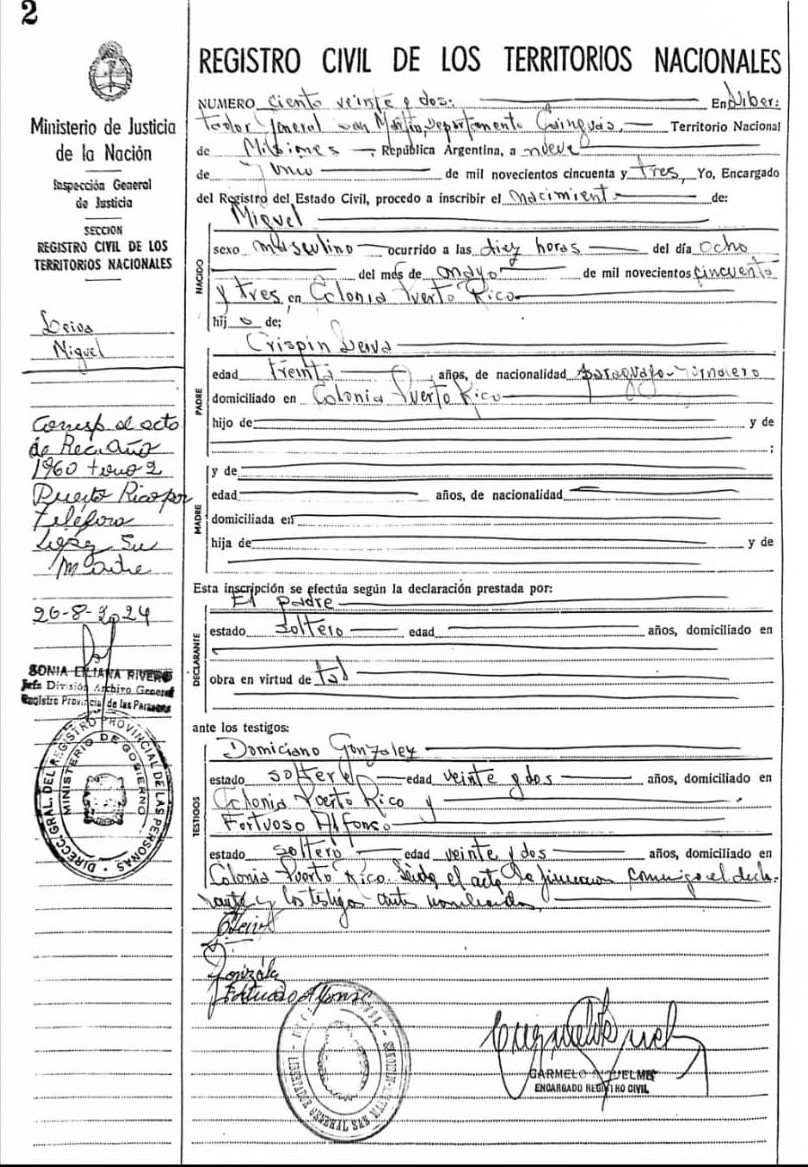 2
Ministerio de Justicia
de la Nación
Inspección General
de Justicia
SECCION
REGISTRO CIVIL DE LOS
TERRITORIOS NACIONALES
Leiva
Miguel
Corresp. al acto
de Rec. Año
1960 tomo 2
Puerto Rico por
Teléfora
López Su
Madre
26-8-2024
SONIA ELIANA RIVERO
Jefa División Archivo General
Registro Provincial de las Personas
DIRECC. GRAL. DEL REGISTRO PROVINCIAL DE LAS PERSONAS
MINISTERIO DE GOBIERNO
REGISTRO CIVIL DE LOS TERRITORIOS NACIONALES
NUMERO ciento veinte y dos: En Liber:
tador General San Martín, departamento Cainguás, Territorio Nacional
de Misiones, República Argentina, a nueve
de Junio de mil novecientos cincuenta y tres, Yo, Encargado
del Registro del Estado Civil, procedo a inscribir el nacimient de:
NACIDO
Miguel
sexo masculino ocurrido a las diez horas del día ocho
del mes de mayo de mil novecientos cincuenta
y tres, en Colonia Puerto Rico
hij o de;
PADRE
Crispin Leiva
edad treinta años, de nacionalidad paraguayo-jornalero
domiciliado en Colonia Puerto Rico
hijo de y de
;
MADRE
y de
edad años, de nacionalidad
domiciliada en
hija de y de
Esta inscripción se efectúa según la declaración prestada por:
DECLARANTE
El padre
estado soltero edad años, domiciliado en
obra en virtud de tal
ante los testigos:
TESTIGOS
Domiciano Gonzalez
estado soltero edad veinte y dos años, domiciliado en
Colonia Puerto Rico y
Fortuoso Alfonso
estado soltero edad veinte y dos años, domiciliado en
Colonia Puerto Rico. Leida el acta la firmaron conmigo el decla-
rante y los testigos antes nombrados.
CLeiva
Gonzále
Fortuoso Alfonso
LIBERTADOR GENERAL SAN
CARMELO RIQUELME
ENCARGADO REGISTRO CIVIL